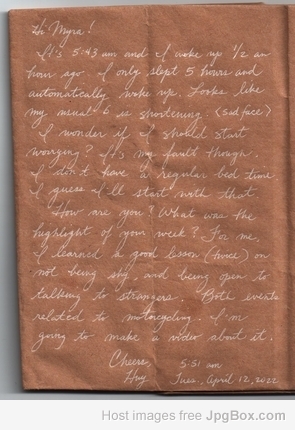 Hi Myra!
It's 5:43 am and I woke up 1/2 an
hour ago. I only slept 5 hours and
automatically woke up. Looks like
my usual 6 is shortening. (sad face)
I wonder if I should start
worrying? It's my fault though.
I don't have a regular bed time.
I guess I'll start with that.
How are you? What was the
highlight of your week? For me,
I learned a good lesson (twice) on
not being shy, and being open to
talking to strangers. Both events
related to motorcycling. I'm
going to make a video about it.
Cheers, 5:51 am
Huy Tues, April 12, 2022
Host images free JpgBox.com